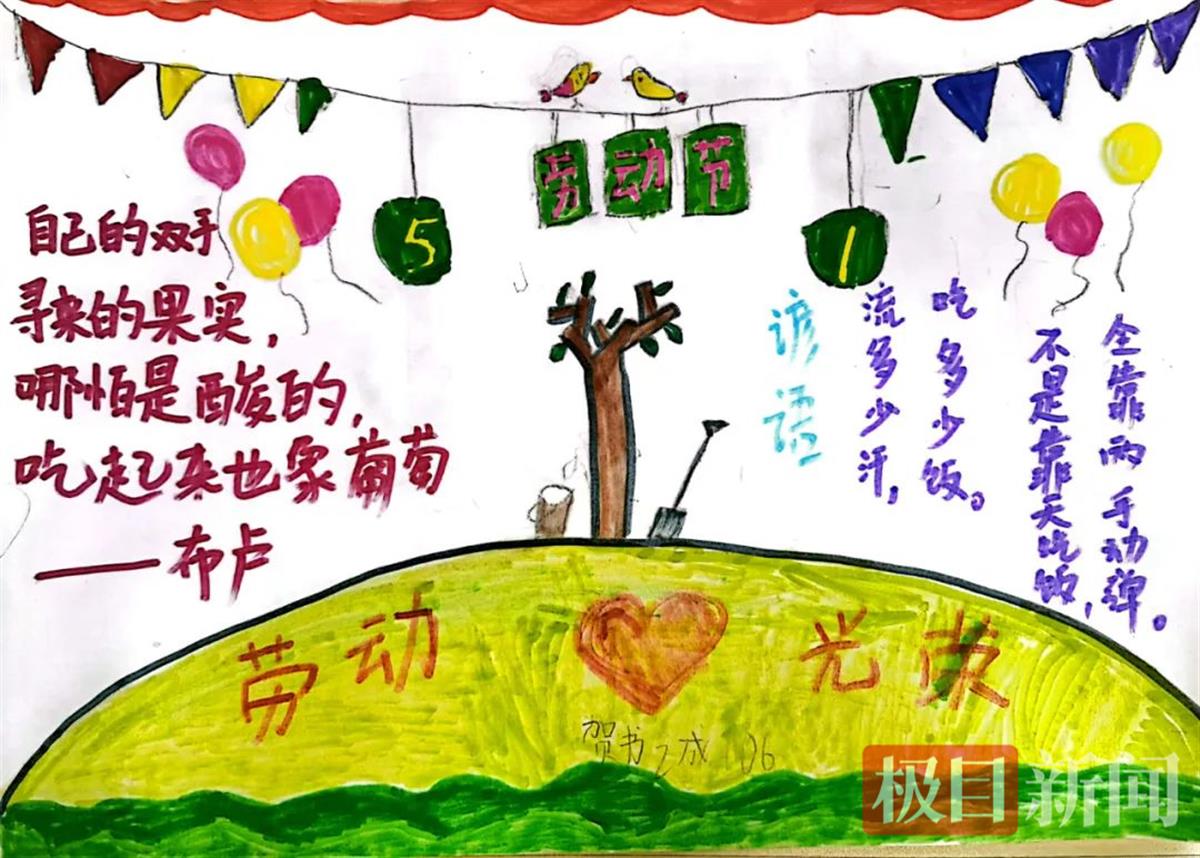 劳动节
5
1
自己的双手
寻来的果实，
哪怕是酸的，
吃起来也象葡萄
——布卢
谚语
流多少汗，
吃多少饭。
不是靠天吃饭，
全靠两手动弹。
劳动
光荣
106
极目新闻